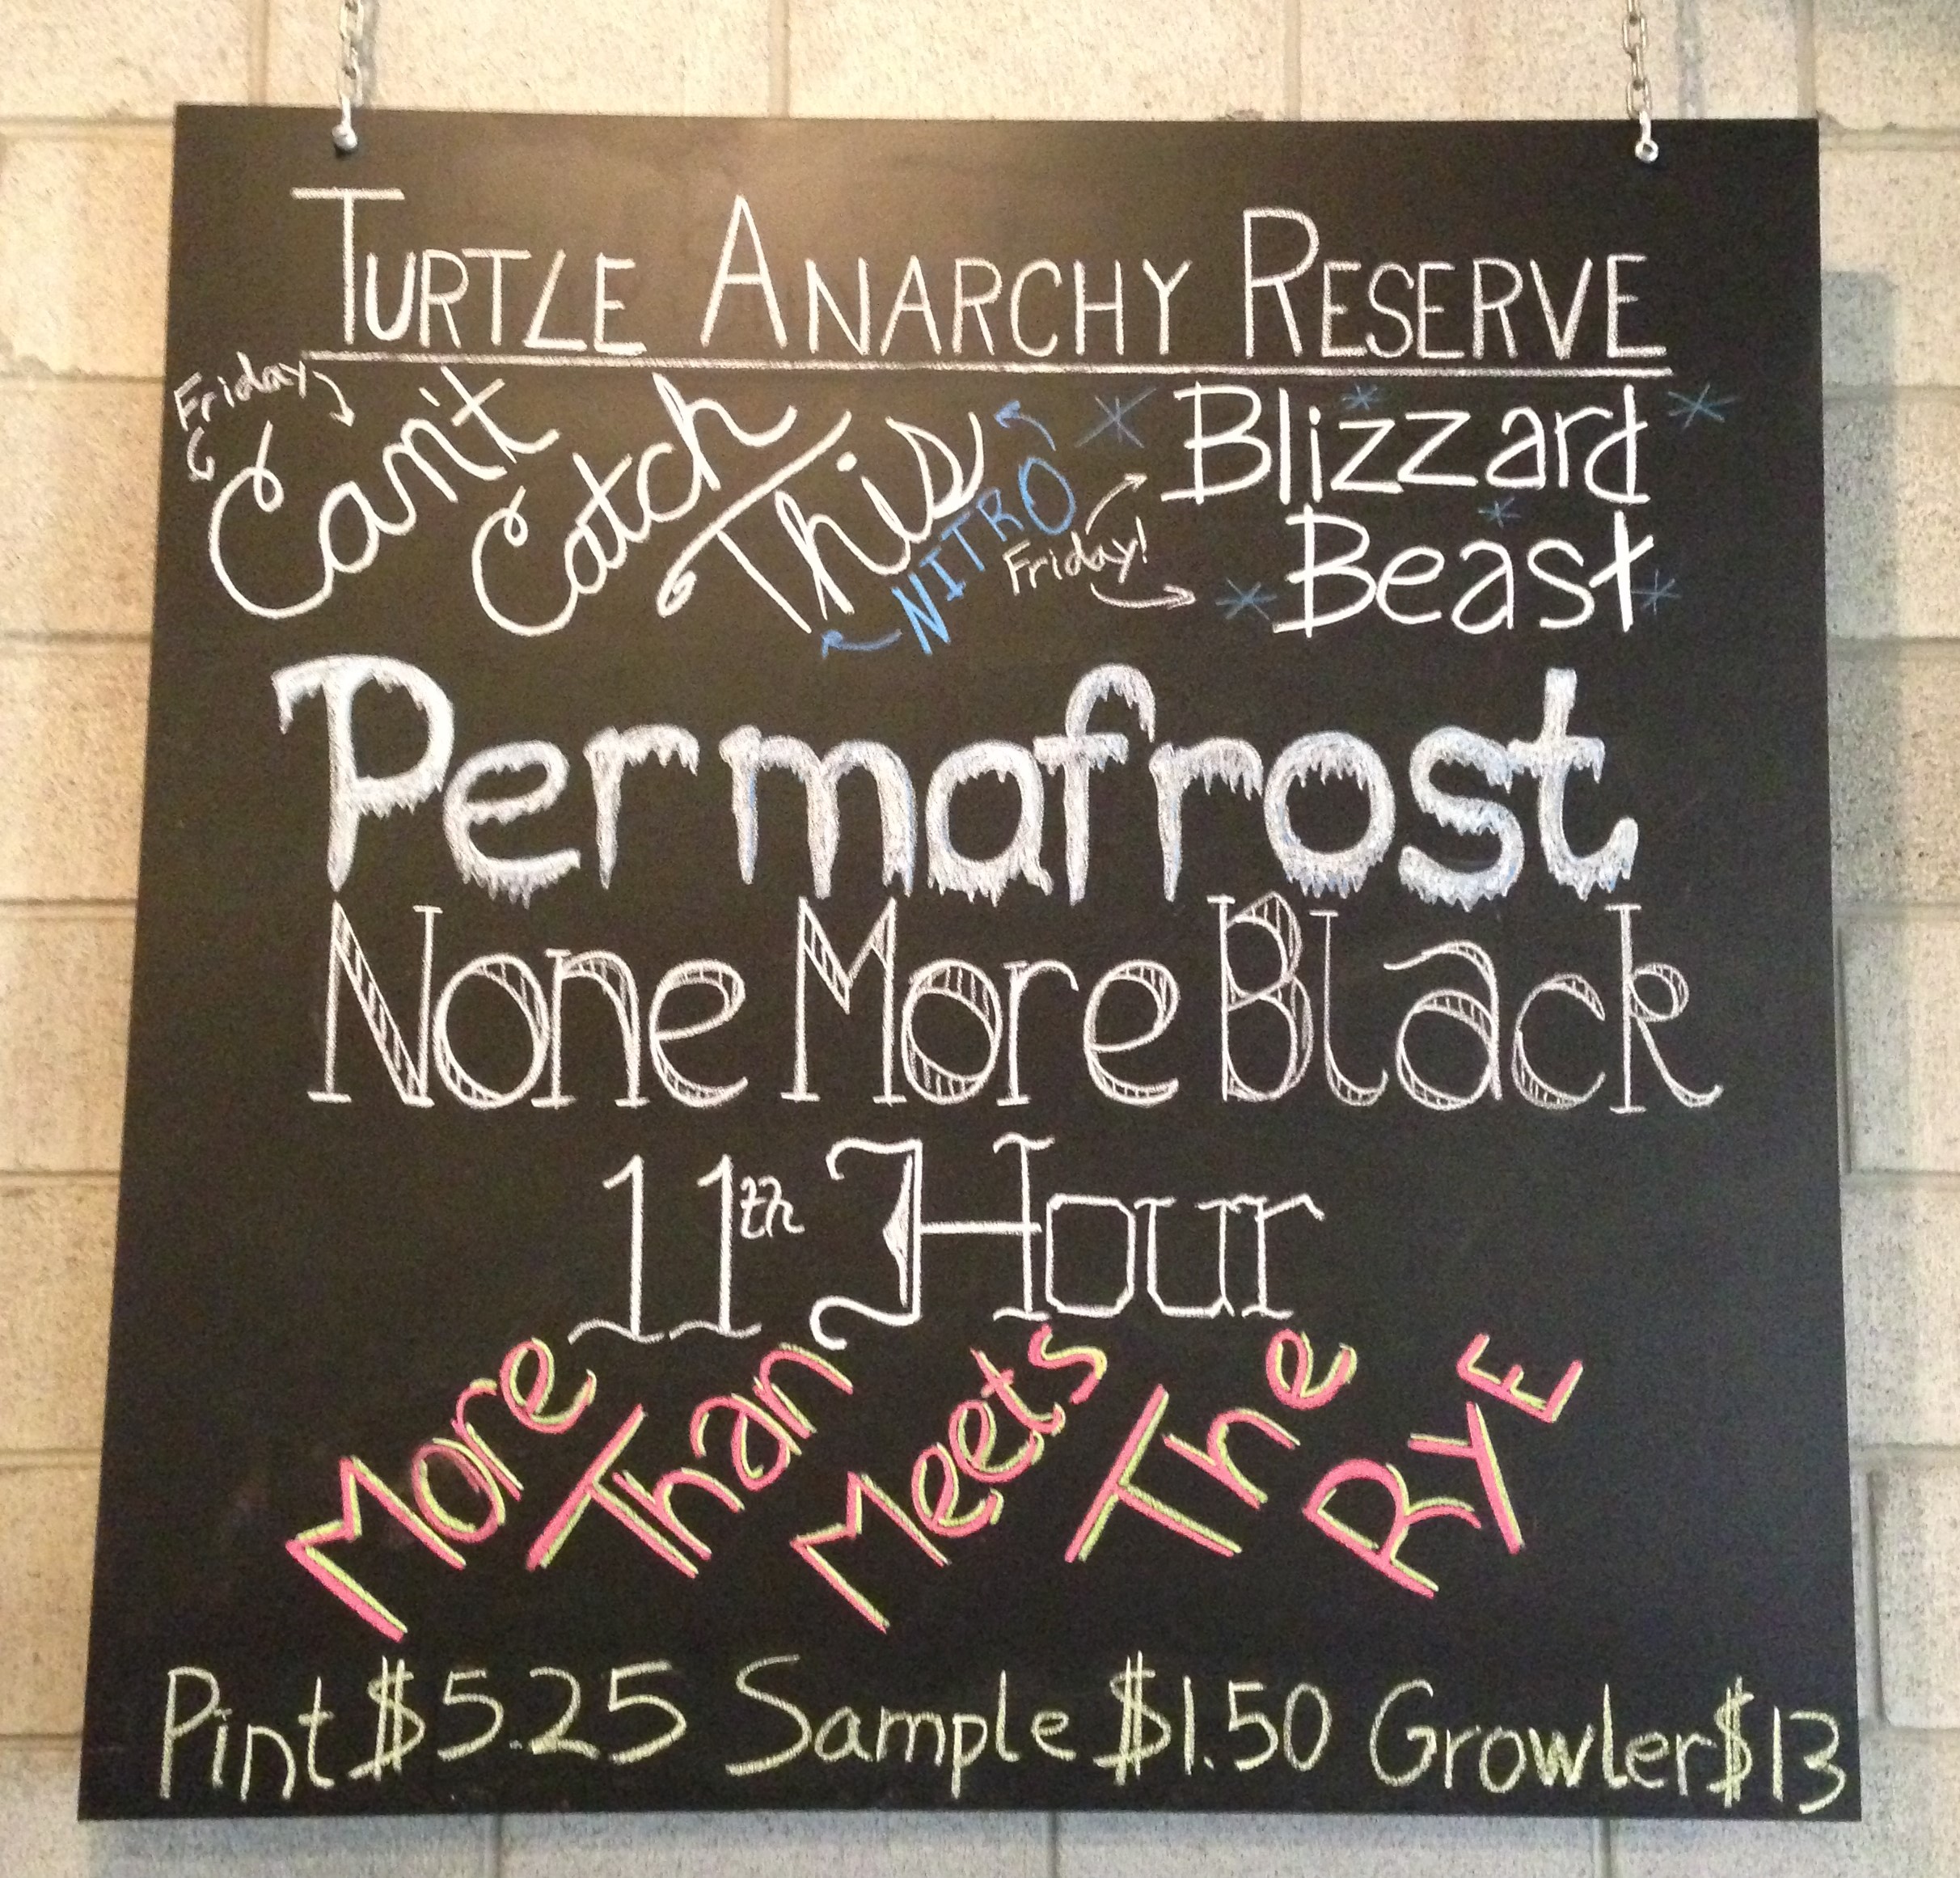 TURTLE ANARCHY RESERVE
Friday
Can't Catch This
NITRO
Friday!
Blizzard
Beast
Permafrost
None More Black
11th Hour
More Than Meets The RYE
Pint $5.25 Sample $1.50 Growler $13